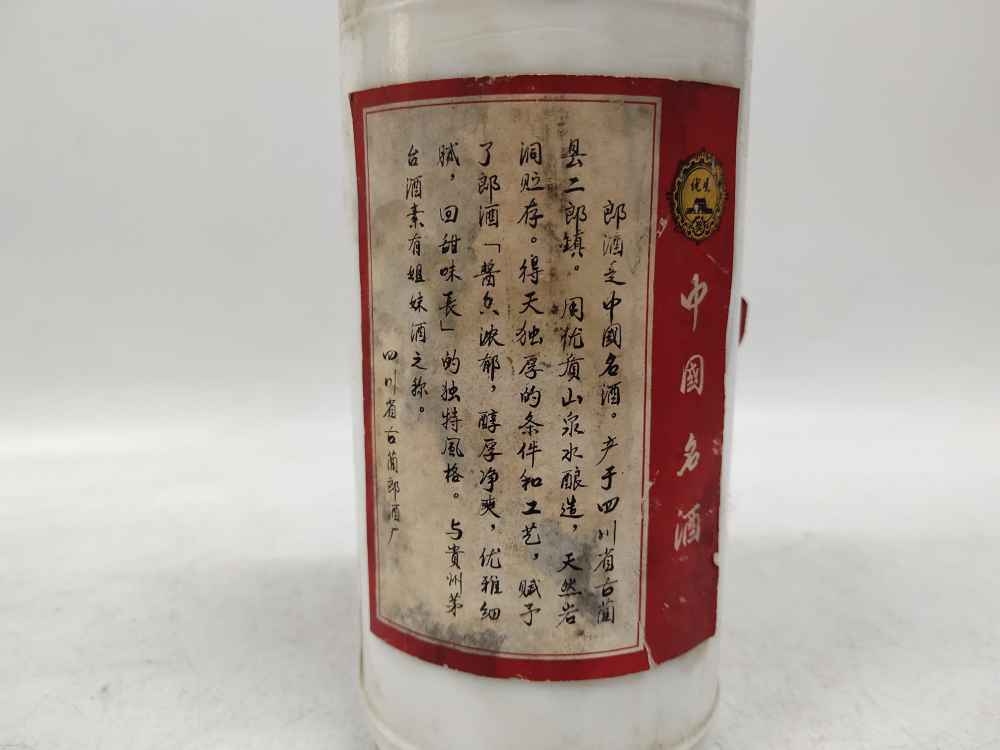 郎酒是中國名酒。产于四川省古蔺
县二郎鎮。用优质山泉水酿造，天然岩
洞贮存。得天独厚的条件和工艺，赋予
了郎酒「醬香浓郁，醇厚净爽，优雅细
腻，回甜味長」的独特風格。与貴州茅
台酒素有姐妹酒之称。
四川省古蔺郎酒厂
优质
中國名酒